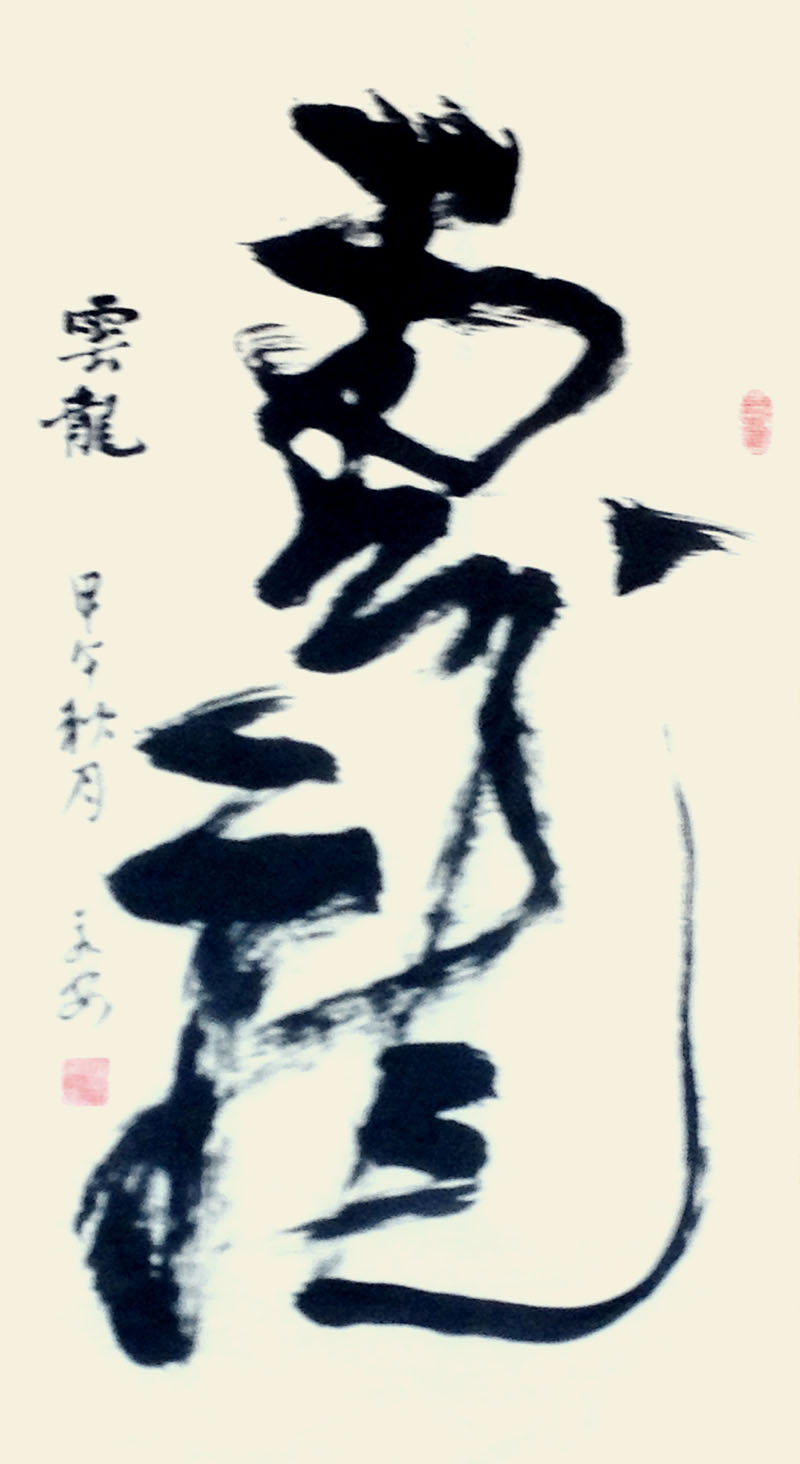 雲龍
雲龍
甲午秋月
文安